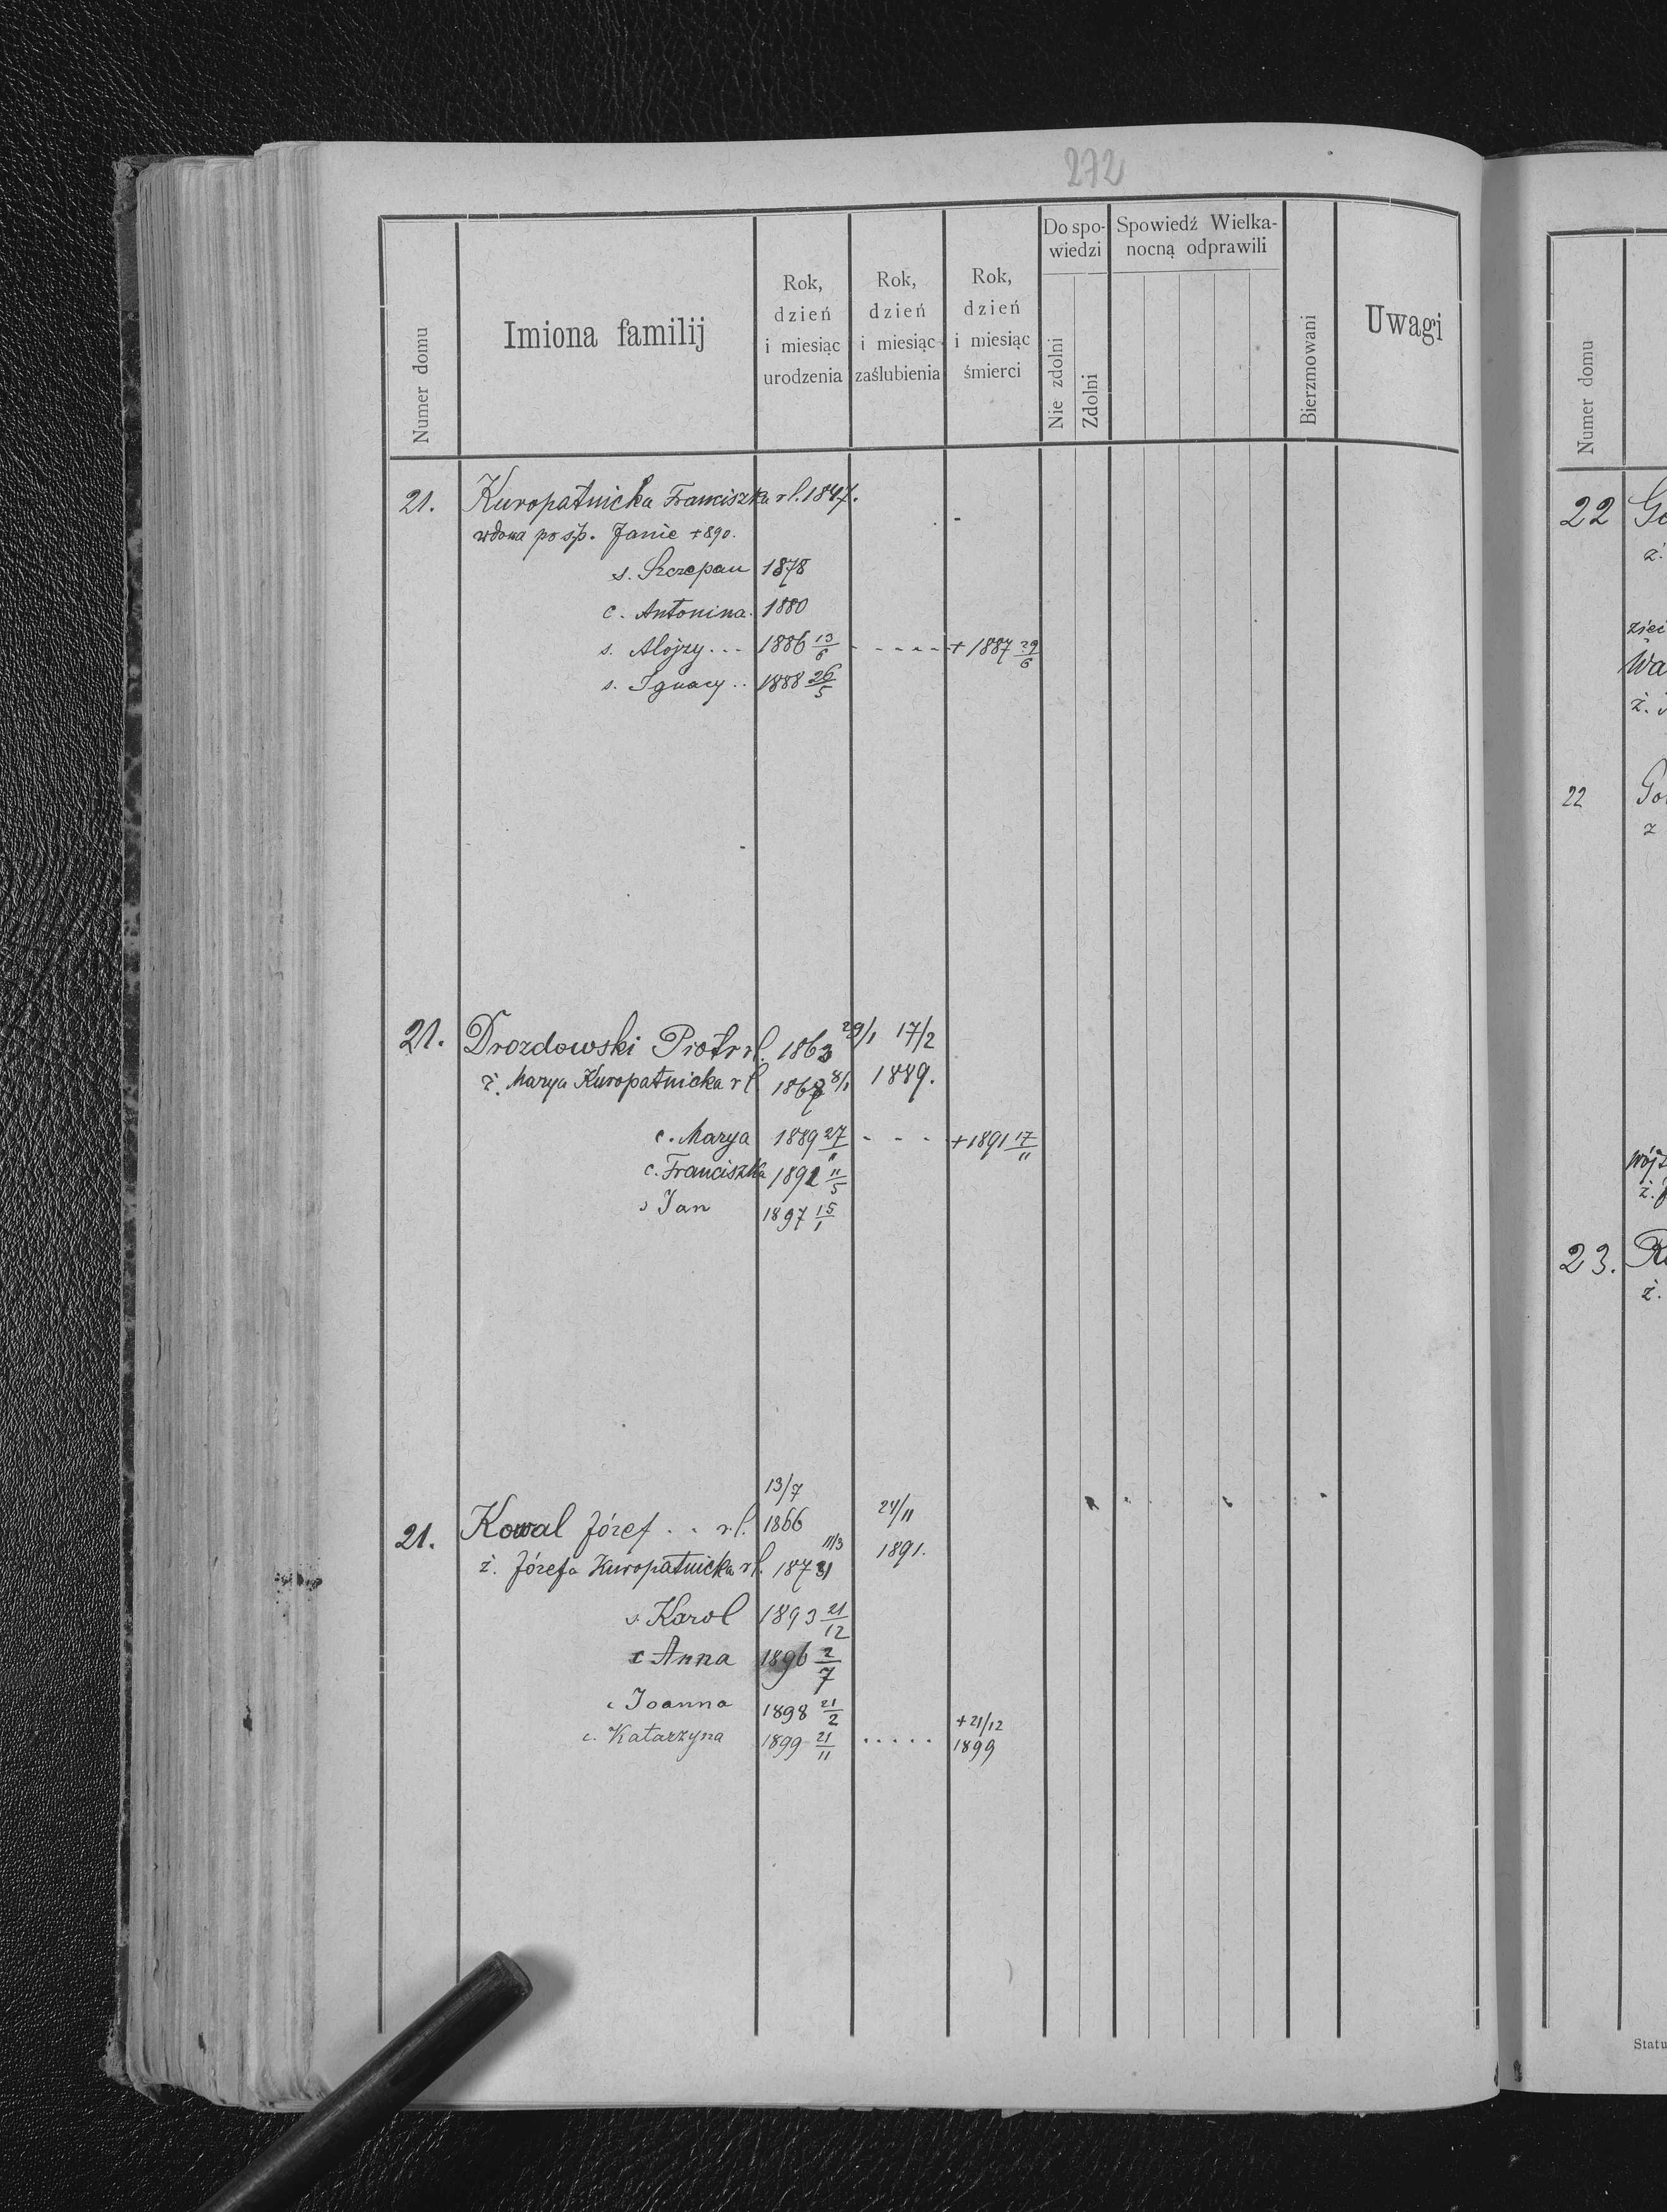 272
Numer domu
Imiona familij
Rok, dzień i miesiąc urodzenia
Rok, dzień i miesiąc zaślubienia
Rok, dzień i miesiąc śmierci
Do spowiedzi
Nie zdolni
Zdolni
Spowiedź Wielkanocną odprawili
Bierzmowani
Uwagi
21. Kuropatnicka Franciszka rl. 1847.
wdowa po śp. Janie +890.
s. Szczepan 1878
c. Antonina. 1880
s. Alojzy... 1886 13/6 - - - - - + 1887 29/6
s. Ignacy.. 1888 26/5
21. Drozdowski Piotr rl. 1863 29/1 17/2
ż. Marya Kuropatnicka rl. 1867 8/1 1889.
c. Marya 1889 27/11 - - - +1891 17/11
c. Franciszka 1892 11/5
s Jan 1897 15/1
13/7
21. Kowal Józef . . rl. 1866 24/11
ż. Józefa Kuropatnicka rl. 1871 11/3 1891.
s. Karol 1893 21/12
c Anna 1896 2/7
c Joanna 1898 21/2
c. Katarzyna 1899 21/11 ..... +21/12 1899
Numer domu
22 Go
ż.
zięć
Wa
ż.
22 Gor
ż
wójt
ż.
23. R
ż.
Statu